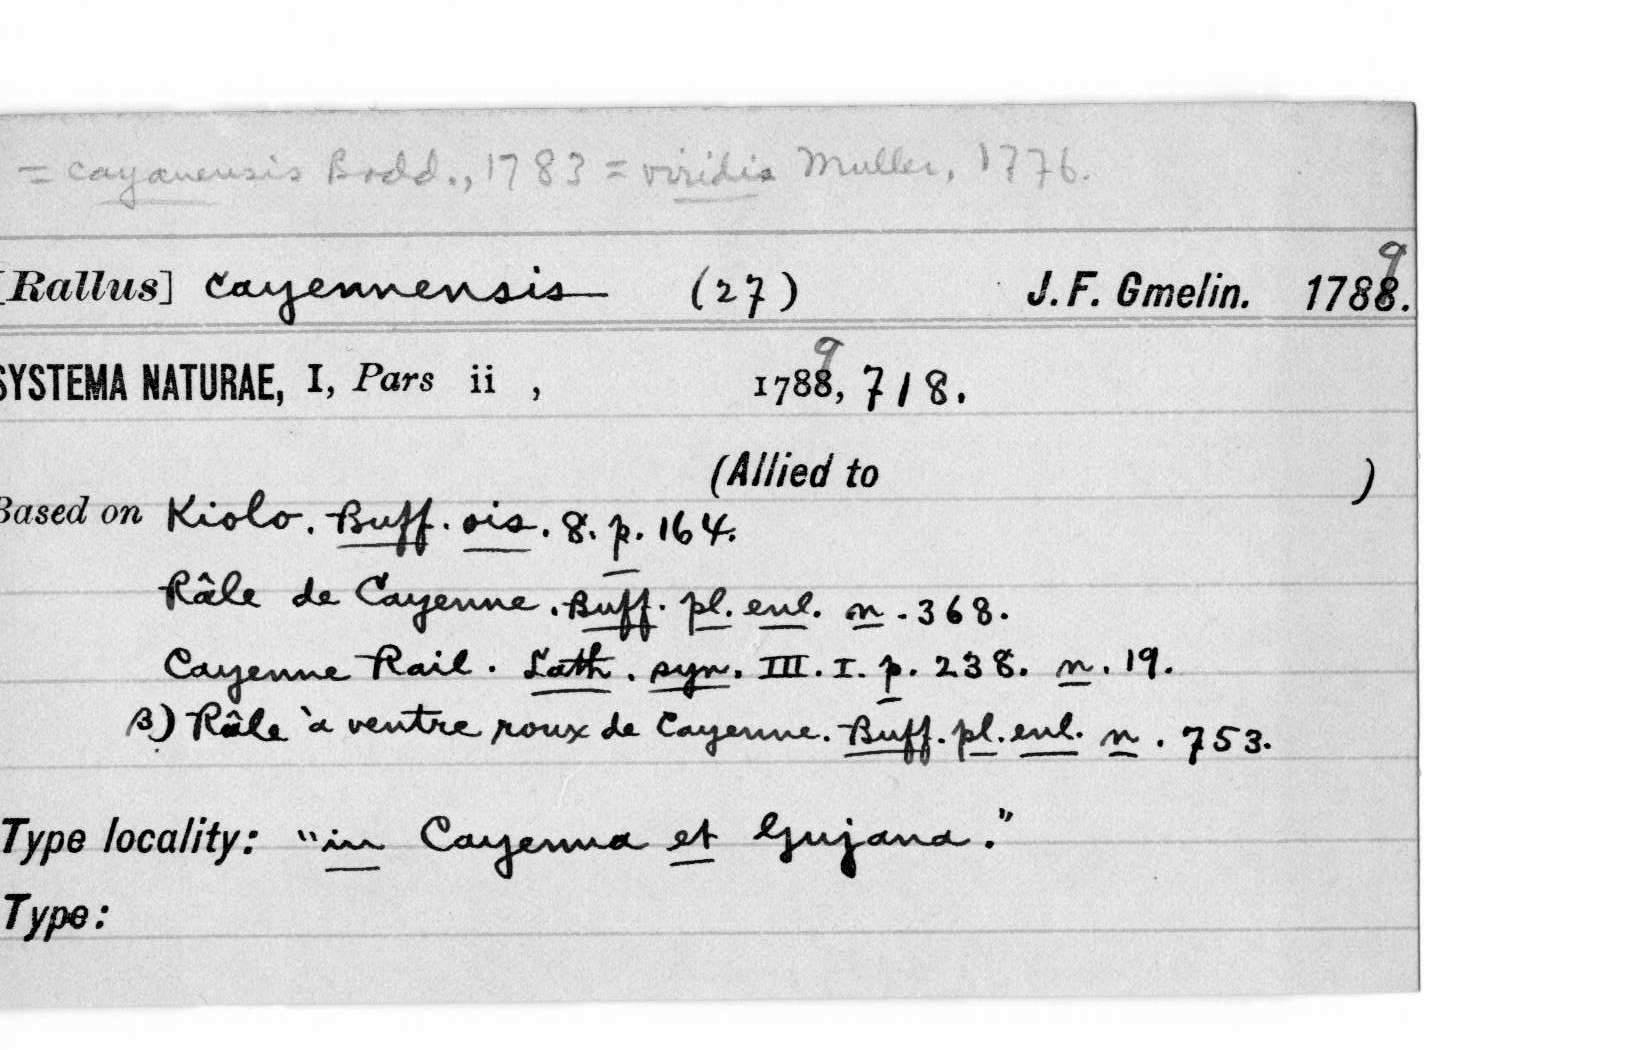 = cayanensis Bodd., 1783 = viridis Muller, 1776.
[Rallus] cayennensis (27) J. F. Gmelin. 1788. 9
SYSTEMA NATURAE, I, Pars ii , 1788, 9 718.
(Allied to )
Based on Kiolo. Buff. ois. 8. p. 164.
Râle de Cayenne. Buff. pl. enl. n. 368.
Cayenne Rail. Lath. syn. III. I. p. 238. n. 19.
β) Râle à ventre roux de Cayenne. Buff. pl. enl. n. 753.
Type locality: "in Cayenna et Gujana."
Type: